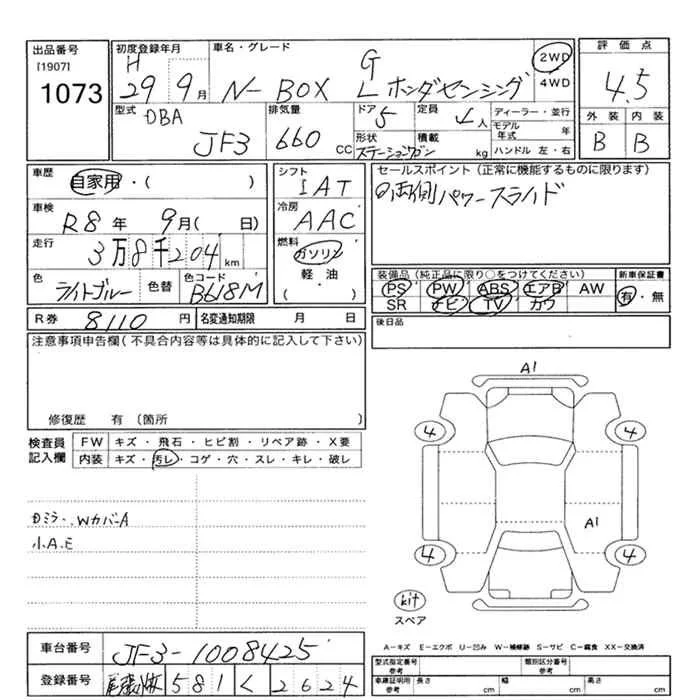 出品番号 初度登録年月 車名・グレード 評価点
[1907] H G 2WD
1073 29 9月 N-BOX L ホンダセンシング 4WD 4.5
型式 DBA 排気量 ドア 5 定員 4人 ディーラー・並行 外装 内装
JF3 660 CC 形状 積載 モデル年式 年 B B
ステーションワゴン kg ハンドル 左・右
車歴 シフト セールスポイント(正常に機能するものに限ります)
自家用・( ) IAT 両側パワースライド
車検 冷房
R8年 9月( 日) AAC
走行 燃料
3万8千204km ガソリン
色 色替 色コード 軽油 装備品(純正品に限り○をつけてください) 新車保証書
ライトブルー B618M ・( ) PS PW ABS エアB AW 有・無
SR ナビ TV カワ
R券 8110円 名変通知期限 月 日 後日品
注意事項申告欄(不具合内容等は具体的に記入して下さい)
修復歴 有〔箇所 〕
検査員 FW キズ・飛石・ヒビ割・リペア跡・X要
記入欄 内装 キズ・汚レ・コゲ・穴・スレ・キレ・破レ
A1
4 4
ミラー、Wカバ-A A1
小A.E
4 4
kit
スペア
A-キズ E-エクボ U-凹み W-補修跡 S-サビ C-腐食 XX-交換済
車台番号 JF3-1008425 型式指定番号 類別区分番号
参考 参考
登録番号 581 く 2624 車庫証明用 長さ 幅 高さ
参考 cm cm cm